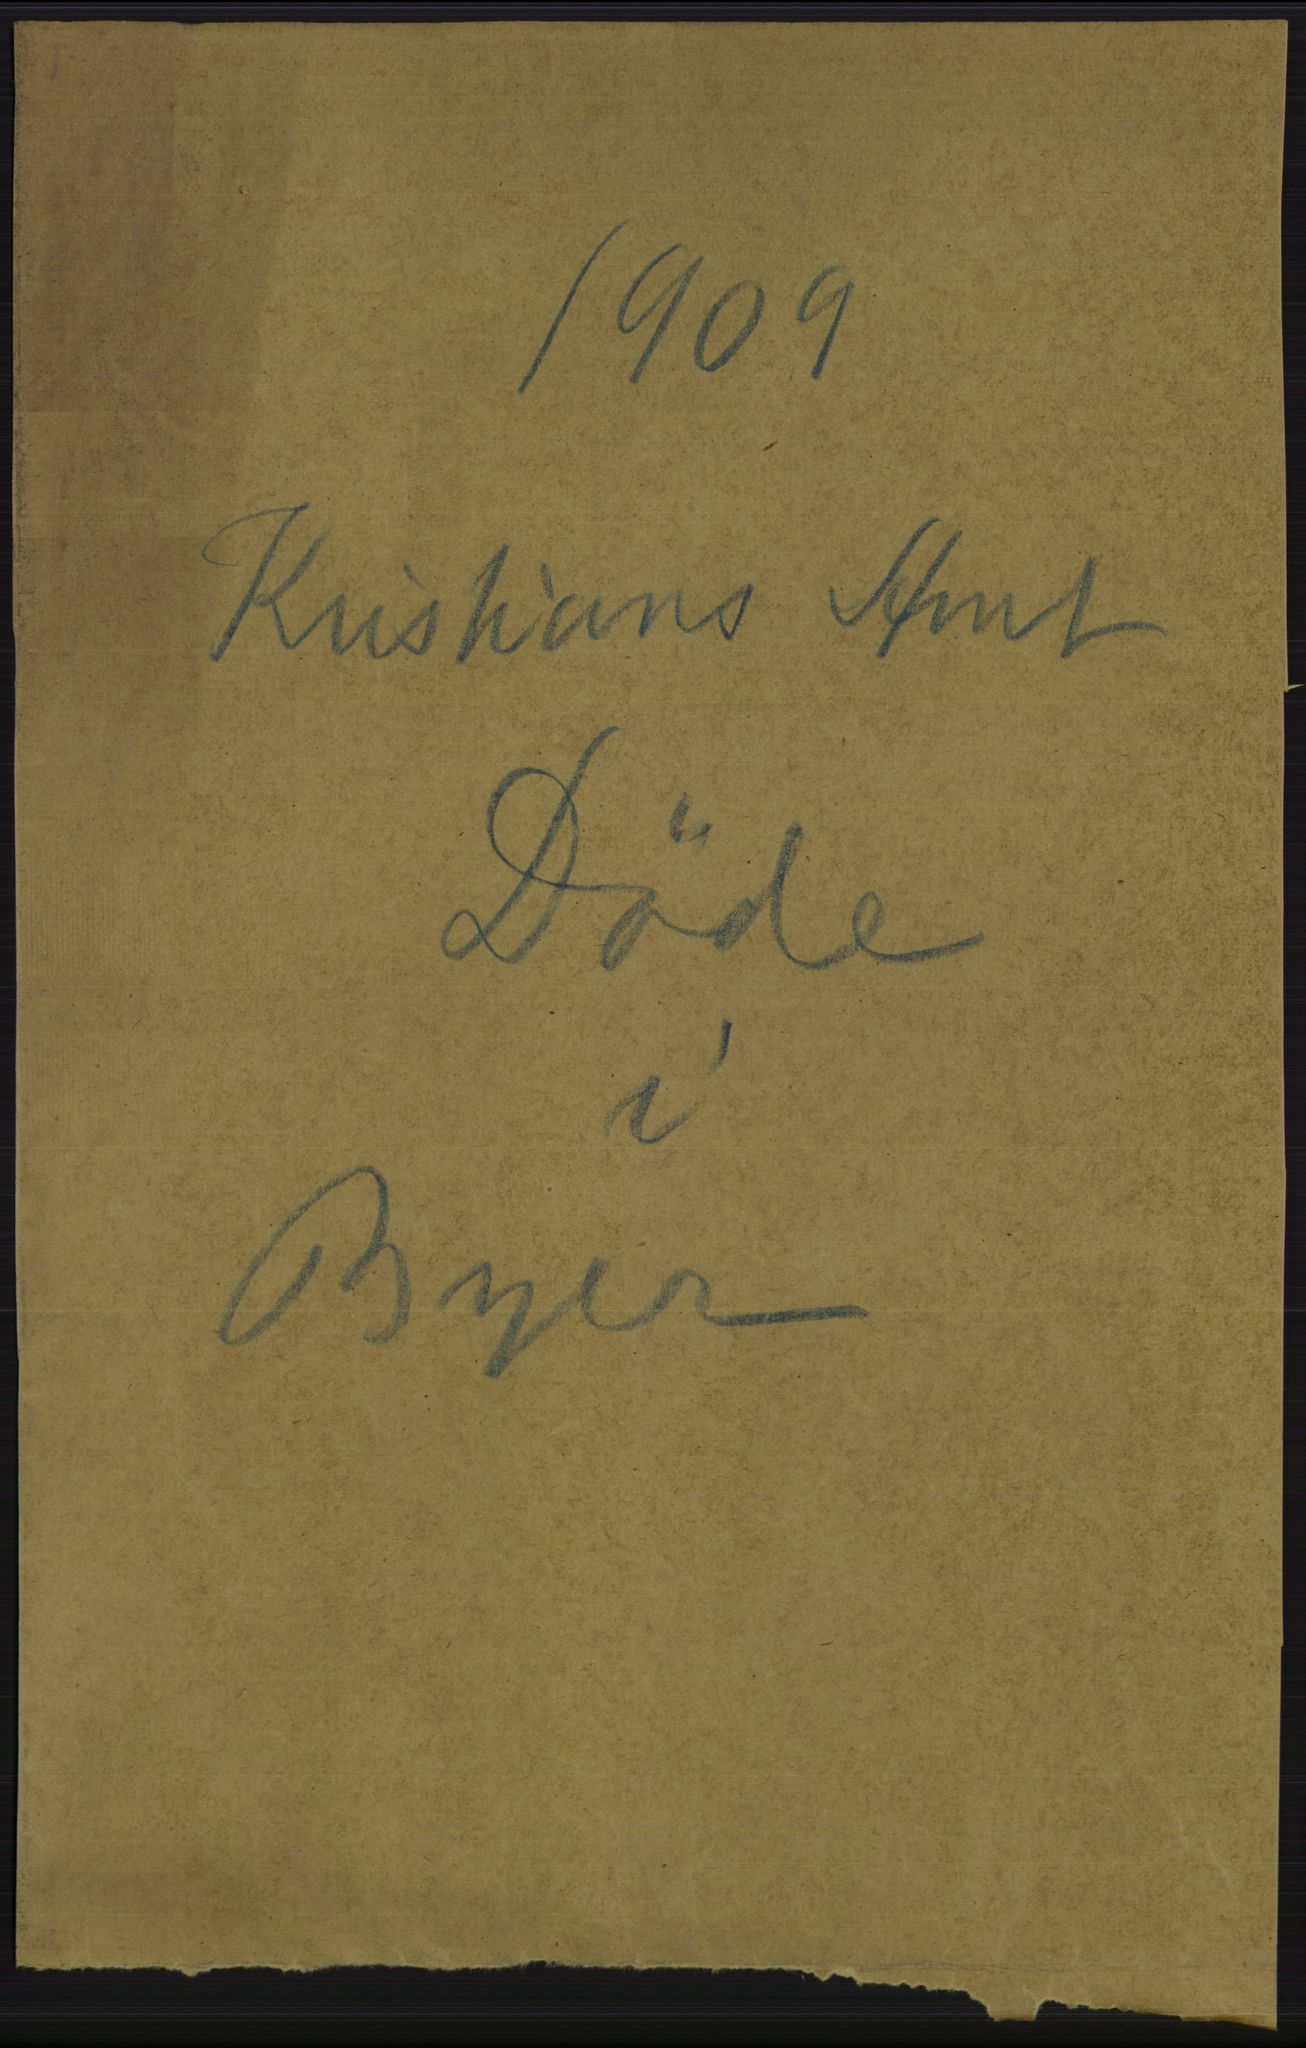 1909
Kristians Amt
Döde
i
Byer